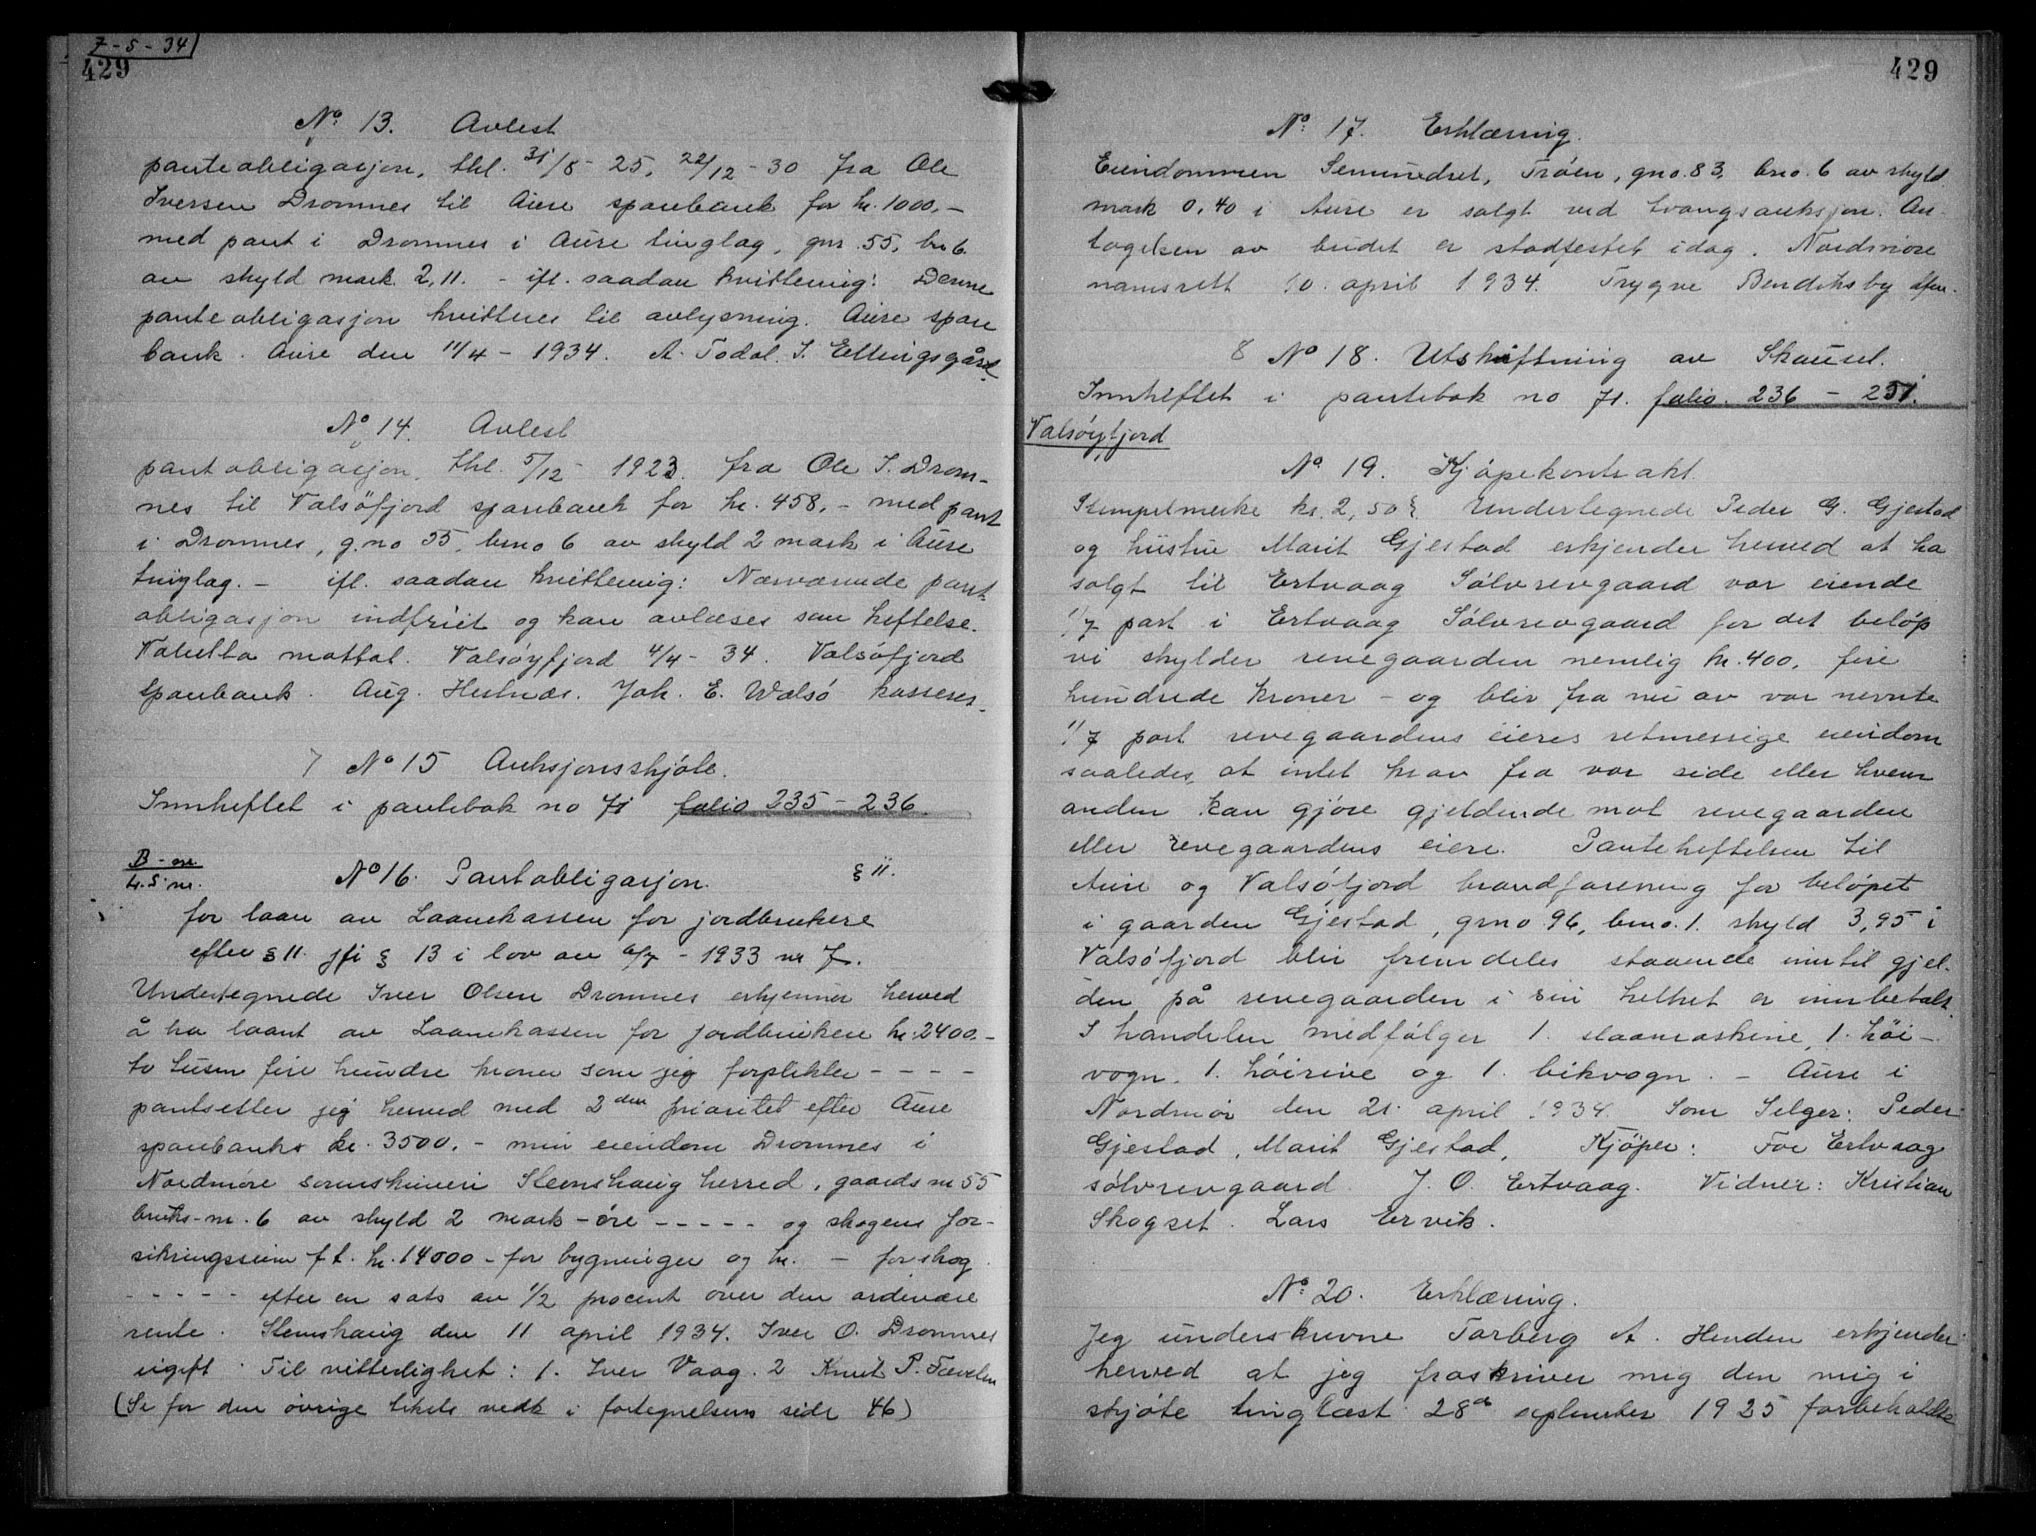 7-5-34
429
No 13. Avlest
panteobligasjon, thl. 31/8-25, 22/12-30 fra Ole
Iversen Dromnes til Aure sparebank for kr. 1000,-
med pant i Dromnes i Aure tinglag, gnr. 55, br. 6
av skyld mark 2,11. - ifl. saadan kvittering: Denne
panteobligasjon kvitteres til avlysning. Aure spare
bank. Aure den 11/4-1934. A. Todal. I. Ellingsgård
No 14. Avlest
pantobligasjon, thl. 5/12-1923. fra Ole I. Drom-
nes til Valsöfjord sparebank for kr. 458,- med pant
i Dromnes, g.no 55, brno 6 av skyld 2 mark i Aure
tinglag. - ifl. saadan kvittering: Nærværende pant-
obligasjon indfriet og kan avlæses som heftelse.
Valutta mottat. Valsøyfjord 4/4-34. Valsöfjord
Sparebank. Aug. Hulnæs. Joh. E. Walsö kasserer.
7 No 15 Auksjonsskjøte.
Innheftet i pantebok no 71 folio 235-236.
No 16. Pantobligasjon. § 11.
for laan av Laanekassen for jordbrukere
efter § 11 jfr § 13 i lov av 6/7-1933 nr 7.
Undertegnede Iver Olsen Dromnes erkjenner herved
å ha laant av Laanekassen for jordbrukere kr. 2400.-
to tusen fire hundre kroner som jeg forplikter - - - -
pantsetter jeg herved med 2den prioritet efter Aure
sparebanks kr. 3500.- min eiendom Dromnes i
Nordmøre sorenskriveri Stemshaug herred, gaards nr 55
bruks-nr. 6 av skyld 2 mark - öre - - - - - og skogens for-
sikringssum f.t. kr. 14000 - for bygninger og kr. - for skog.
- - - - - efter en sats av 1/2 procent over den ordinære
rente. Stemshaug den 11 april 1934. Iver O. Dromnes
ugift. Til vitterlighet: 1. Iver Vaag. 2 Knut P.
(Se for den övrige tekst vedk i fortegnelsens side 46)
429
No 17. Erklæring.
Eiendommen Semundset, Trøen, gno. 83, bno. 6 av skyld
mark 0,40 i Aure er solgt ved tvangsauksjon. An-
tagelsen av budet er stadfestet idag. Nordmøre
namsrett 10. april 1934. Trygve Bendiksby
8 No 18. Utskiftning av Skausel.
Innheftet i pantebok no 71. folio. 236-251.
Valsöyfjord
No 19. Kjøpekontrakt.
Stempelmerke kr. 2,50. Undertegnede Peder G. Gjestad
og hustru Marit Gjestad erkjender herved at ha
solgt til Ertvaag Sølvrevgaard vor eiende
1/7 part i Ertvaag Sølvrevgaard for det beløp
vi skylder revegaarden nemlig kr. 400, fire
hundrede kroner - og blir fra nu av vor nevnte
1/7 part revegaardens eieres retmessige eiendom
saaledes at intet krav fra vor side eller hvem
anden kan gjøre gjeldende mot revegaarden
eller revegaardens eiere. Panteheftelsen til
Aure og Valsöfjord brandforening for beløpet
i gaarden Gjestad, grno. 96, brno. 1. skyld 3,95 i
Valsöfjord blir fremdeles staaende inntil gjel-
den på revegaarden i sin helhet er innbetalt.
I handelen medfølger 1. slaamaskine, 1. höi-
vogn. 1. höirive og 1. bikvogn. - Aure i
Nordmør den 21. april 1934. Som Selger: Peder
Gjestad, Marit Gjestad. Kjøper: For Ertvaag
sølvrevgaard. J. O. Ertvaag. Vidner: Kristian
Skogset. Lars Ervik.
No 20. Erklæring.
Jeg underskrevne Torberg A. Henden erkjender
herved at jeg fraskriver mig den mig i
skjøte tinglæst 28de september 1925 forbeholdte